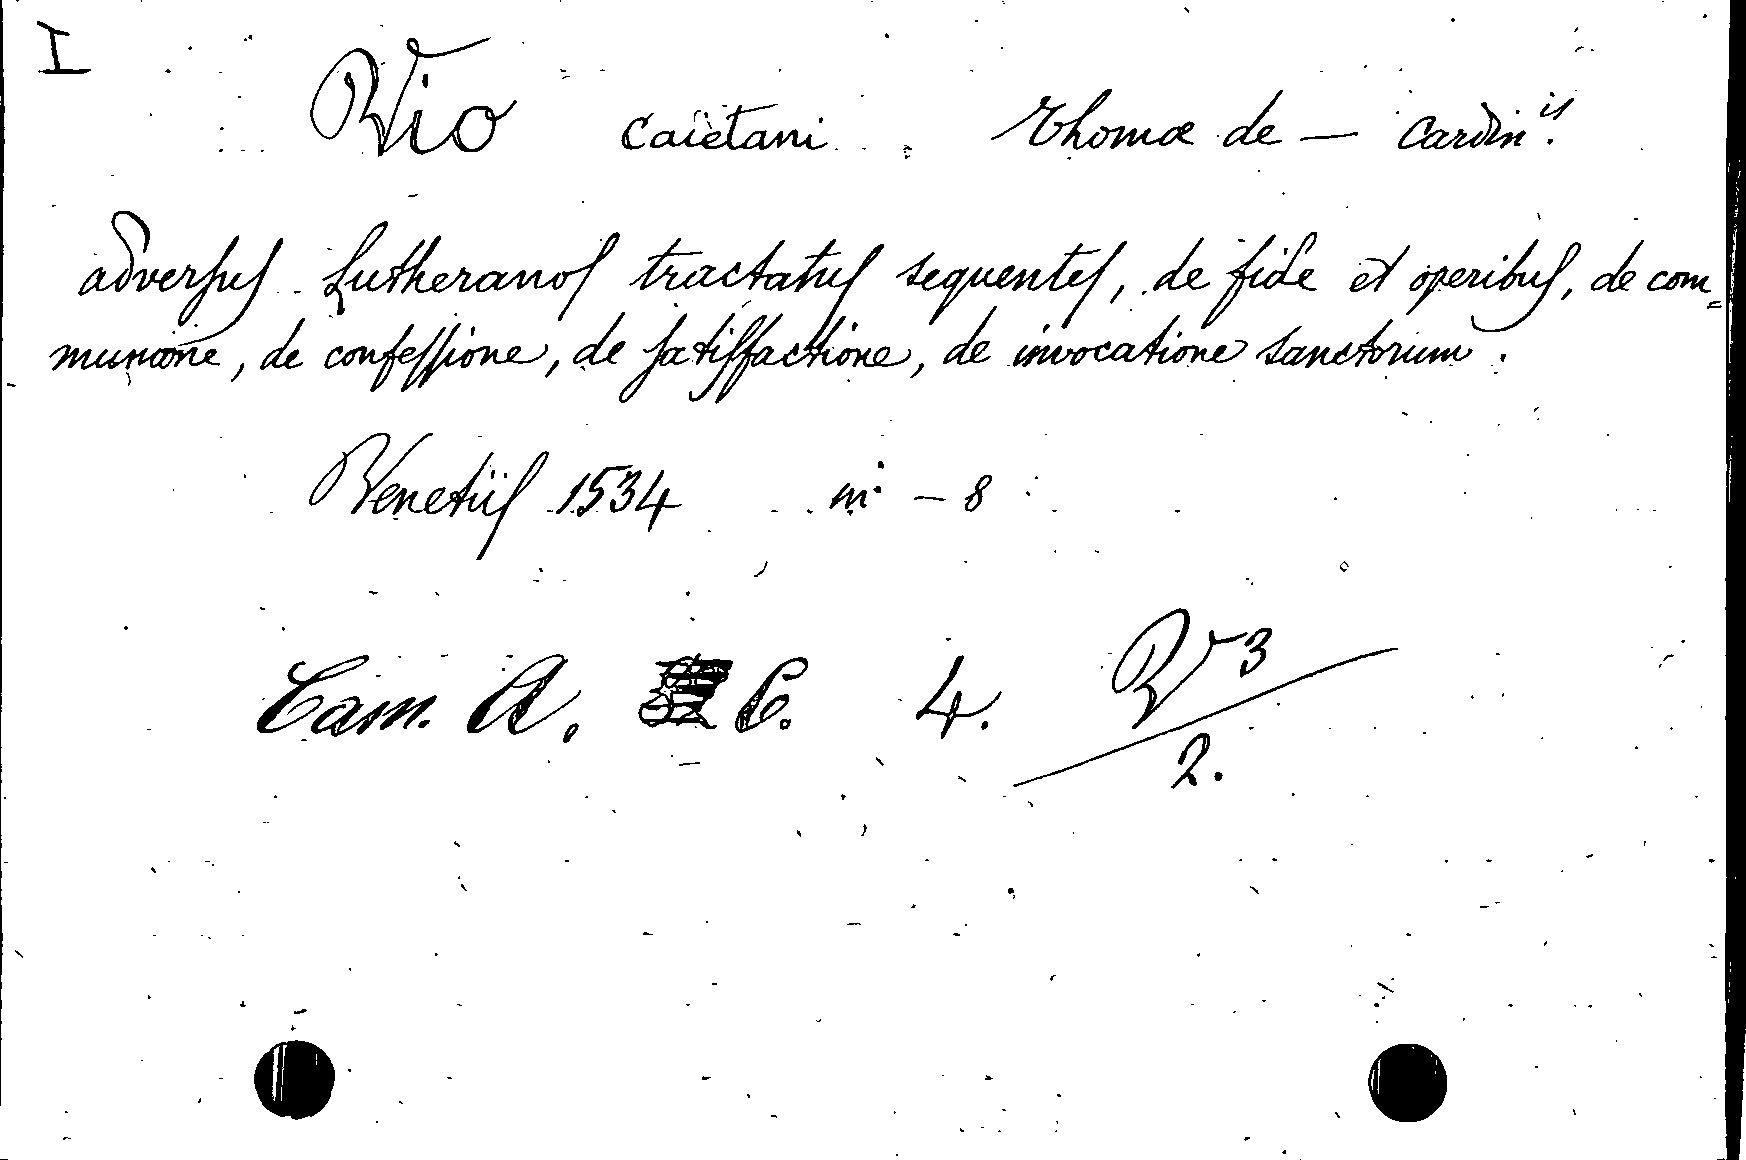 I
Vio Caietani Thomæ de — Cardin^is.
adversus Lutheranos tractatus sequentes, de fide et operibus, de com=
munione, de confessione, de satisfactione, de invocatione sanctorum.
Venetiis 1534 in - 8
Cam. A. C. 4. V3
2.